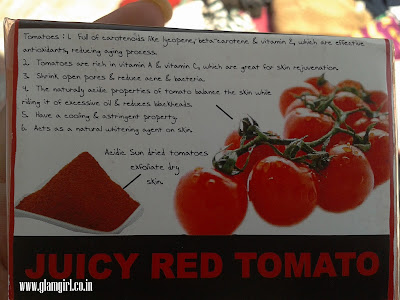 Tomatoes : 1. Full of carotenoids like lycopene, beta-carotene & vitamin E, which are effective
antioxidants, reducing aging process.
2. Tomatoes are rich in vitamin A & vitamin C, which are great for skin rejuvenation.
3. Shrink open pores & reduce acne & bacteria.
4. The naturally acidic properties of tomato balance the skin while
riding it of excessive oil & reduces blackheads.
5. Have a cooling & astringent property.
6. Acts as a natural whitening agent on skin.
Acidic Sun dried tomatoes
exfoliate dry
skin.
JUICY RED TOMATO
www.glamgirl.co.in